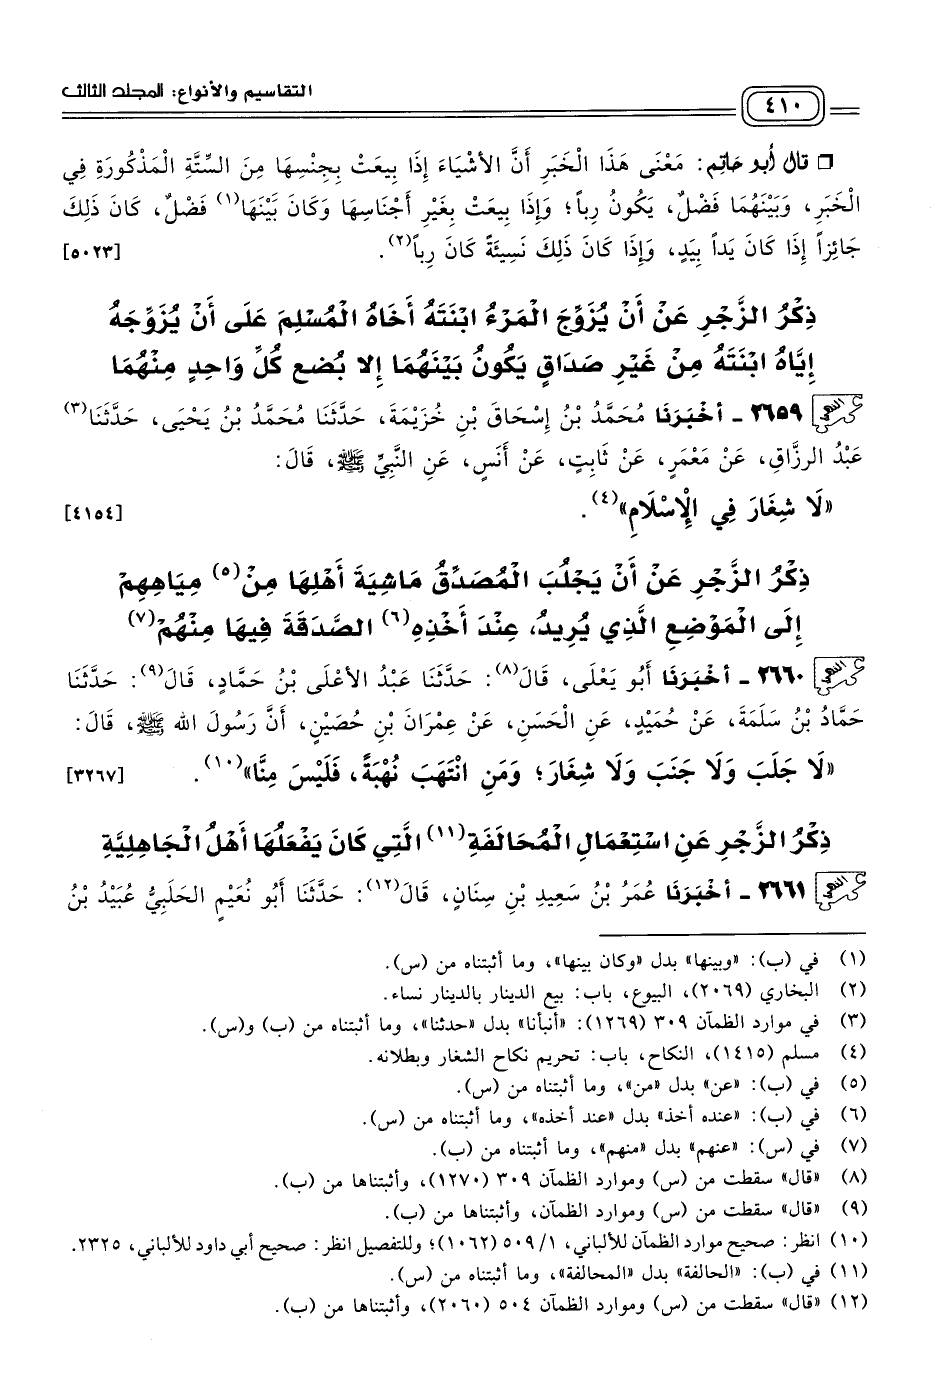 التقاسيم والأنواع: المجلد الثالث
٤١٠
❒ قال أبو حاتم: مَعْنَى هَذَا الْخَبَرِ أَنَّ الأَشْيَاءَ إِذَا بِيعَتْ بِجِنْسِهَا مِنَ السِّتَّةِ الْمَذْكُورَةِ فِي
الْخَبَرِ، وَبَيْنَهُمَا فَضْلٌ، يَكُونُ رِباً؛ وَإِذَا بِيعَتْ بِغَيْرِ أَجْنَاسِهَا وَكَانَ بَيْنَهَا(١) فَضْلٌ، كَانَ ذَلِكَ
جَائِزاً إِذَا كَانَ يَداً بِيَدٍ، وَإِذَا كَانَ ذَلِكَ نَسِيئَةً كَانَ رِباً(٢). [٥٠٢٣]
ذِكْرُ الزَّجْرِ عَنْ أَنْ يُزَوِّجَ الْمَرْءُ ابْنَتَهُ أَخَاهُ الْمُسْلِمَ عَلَى أَنْ يُزَوِّجَهُ
إِيَّاهُ ابْنَتَهُ مِنْ غَيْرِ صَدَاقٍ يَكُونُ بَيْنَهُمَا إِلا بُضع كُلِّ وَاحِدٍ مِنْهُمَا
٢٦٥٩ - أَخْبَرَنَا مُحَمَّدُ بْنُ إِسْحَاقَ بْنِ خُزَيْمَةَ، حَدَّثَنَا مُحَمَّدُ بْنُ يَحْيَى، حَدَّثَنَا(٣)
عَبْدُ الرزَّاقِ، عَنْ مَعْمَرٍ، عَنْ ثَابِتٍ، عَنْ أَنَسٍ، عَنِ النَّبِيِّ ﷺ، قَالَ:
«لَا شِغَارَ فِي الْإِسْلَامِ»(٤). [٤١٥٤]
ذِكْرُ الزَّجْرِ عَنْ أَنْ يَجْلُبَ الْمُصَدِّقُ مَاشِيَةَ أَهْلِهَا مِنْ(٥) مِيَاهِهِمْ
إِلَى الْمَوْضِعِ الَّذِي يُرِيدُ، عِنْدَ أَخْذِهِ(٦) الصَّدَقَةَ فِيهَا مِنْهُمْ(٧)
٢٦٦٠ - أَخْبَرَنَا أَبُو يَعْلَى، قَالَ(٨): حَدَّثَنَا عَبْدُ الأَعْلَى بْنُ حَمَّادٍ، قَالَ(٩): حَدَّثَنَا
حَمَّادُ بْنُ سَلَمَةَ، عَنْ حُمَيْدٍ، عَنِ الْحَسَنِ، عَنْ عِمْرَانَ بْنِ حُصَيْنٍ، أَنَّ رَسُولَ الله ﷺ، قَالَ:
«لَا جَلَبَ وَلَا جَنَبَ وَلَا شِغَارَ؛ وَمَنِ انْتَهَبَ نُهْبَةً، فَلَيْسَ مِنَّا»(١٠). [٣٢٦٧]
ذِكْرُ الزَّجْرِ عَنِ اسْتِعْمَالِ الْمُحَالَفَةِ(١١) الَّتِي كَانَ يَفْعَلُهَا أَهْلُ الْجَاهِلِيَّةِ
٢٦٦١ - أَخْبَرَنَا عُمَرُ بْنُ سَعِيدِ بْنِ سِنَانٍ، قَالَ(١٢): حَدَّثَنَا أَبُو نُعَيْمٍ الحَلَبِيُّ عُبَيْدُ بْنُ
(١) في (ب): «وبينها» بدل «وكان بينها»، وما أثبتناه من (س).
(٢) البخاري (٢٠٦٩)، البيوع، باب: بيع الدينار بالدينار نساء.
(٣) في موارد الظمآن ٣٠٩ (١٢٦٩): «أنبأنا» بدل «حدثنا»، وما أثبتناه من (ب) و(س).
(٤) مسلم (١٤١٥)، النكاح، باب: تحريم نكاح الشغار وبطلانه.
(٥) في (ب): «عن» بدل «من»، وما أثبتناه من (س).
(٦) في (ب): «عنده أخذ» بدل «عند أخذه»، وما أثبتناه من (س).
(٧) في (س): «عنهم» بدل «منهم»، وما أثبتناه من (ب).
(٨) «قال» سقطت من (س) وموارد الظمآن ٣٠٩ (١٢٧٠)، وأثبتناها من (ب).
(٩) «قال» سقطت من (س) وموارد الظمآن، وأثبتناها من (ب).
(١٠) انظر: صحيح موارد الظمآن للألباني، ١/ ٥٠٩ (١٠٦٢)؛ وللتفصيل انظر: صحيح أبي داود للألباني، ٢٣٢٥.
(١١) في (ب): «الحالفة» بدل «المحالفة»، وما أثبتناه من (س).
(١٢) «قال» سقطت من (س) وموارد الظمآن ٥٠٤ (٢٠٦٠)، وأثبتناها من (ب).